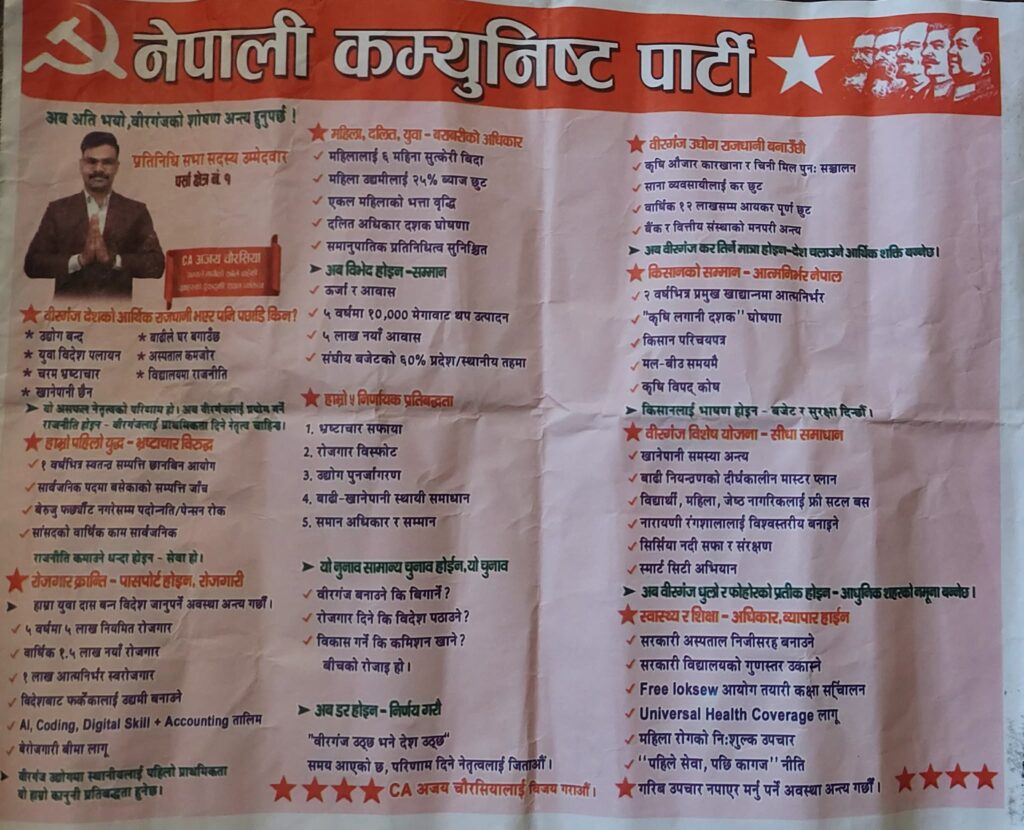 नेपाली कम्युनिष्ट पार्टी
अब अति भयो, वीरगंजको शोषण अन्त्य हुनुपर्छ !
प्रतिनिधि सभा सदस्य उम्मेदवार
पर्सा क्षेत्र नं. १
CA अजय चौरसिया
वीरगंज देशको आर्थिक राजधानी भएर पनि पछाडि किन?
* उद्योग बन्द
* युवा विदेश पलायन
* चरम भ्रष्टाचार
* खानेपानी छैन
* बाढीले घर बगाउँछ
* अस्पताल कमजोर
* विद्यालयमा राजनीति
➤ यो असफल नेतृत्वको परिणाम हो। अब वीरगंजलाई प्रयोग गर्ने
राजनीति होइन - वीरगंजलाई प्राथमिकता दिने नेतृत्व चाहिन्छ।
★ हाम्रो पहिलो युद्ध - भ्रष्टाचार विरुद्ध
✓ १ वर्षभित्र स्वतन्त्र सम्पत्ति छानबिन आयोग
✓ सार्वजनिक पदमा बसेकाको सम्पत्ति जाँच
✓ बेरुजु फर्छ्यौट नगरेसम्म पदोन्नति/पेन्सन रोक
✓ सांसदको वार्षिक काम सार्वजनिक
राजनीति कमाउने धन्दा होइन - सेवा हो।
★ रोजगार क्रान्ति - पासपोर्ट होइन, रोजगारी
➤ हाम्रा युवा दास बन्न विदेश जानुपर्ने अवस्था अन्त्य गर्छौं।
✓ ५ वर्षमा ५ लाख नियमित रोजगार
✓ वार्षिक १.५ लाख नयाँ रोजगार
✓ १ लाख आत्मनिर्भर स्वरोजगार
✓ विदेशबाट फर्केकालाई उद्यमी बनाउने
✓ AI, Coding, Digital Skill + Accounting तालिम
✓ बेरोजगारी बीमा लागू
➤ वीरगंज उद्योगमा स्थानीयलाई पहिलो प्राथमिकता
यो हाम्रो कानुनी प्रतिबद्धता हुनेछ।
★ महिला, दलित, युवा - बराबरीको अधिकार
✓ महिलालाई ६ महिना सुत्केरी बिदा
✓ महिला उद्यमीलाई २५% ब्याज छुट
✓ एकल महिलाको भत्ता वृद्धि
✓ दलित अधिकार दशक घोषणा
✓ समानुपातिक प्रतिनिधित्व सुनिश्चित
➤ अब विभेद होइन - सम्मान
✓ ऊर्जा र आवास
✓ ५ वर्षमा १०,००० मेगावाट थप उत्पादन
✓ ५ लाख नयाँ आवास
✓ संघीय बजेटको ६०% प्रदेश/स्थानीय तहमा
★ हाम्रो ५ निर्णायक प्रतिबद्धता
1. भ्रष्टाचार सफाया
2. रोजगार विस्फोट
3. उद्योग पुनर्जागरण
4. बाढी-खानेपानी स्थायी समाधान
5. समान अधिकार र सम्मान
➤ यो चुनाव सामान्य चुनाव होईन, यो चुनाव
✓ वीरगंज बनाउने कि बिगार्ने?
✓ रोजगार दिने कि विदेश पठाउने?
✓ विकास गर्ने कि कमिशन खाने?
बीचको रोजाइ हो।
➤ अब डर होइन - निर्णय गरौं
"वीरगंज उठ्छ भने देश उठ्छ"
समय आएको छ, परिणाम दिने नेतृत्वलाई जिताऔं।
★★★★ CA अजय चौरसियालाई विजय गराऔं।
★ वीरगंज उद्योग राजधानी बनाउँछौं
✓ कृषि औजार कारखाना र चिनी मिल पुन: सञ्चालन
✓ साना व्यवसायीलाई कर छुट
✓ वार्षिक १२ लाखसम्म आयकर पूर्ण छुट
✓ बैंक र वित्तीय संस्थाको मनपरी अन्त्य
➤ अब वीरगंज कर तिर्ने मात्रा होइन-देश चलाउने आर्थिक शक्ति बन्नेछ।
★ किसानको सम्मान - आत्मनिर्भर नेपाल
✓ २ वर्षभित्र प्रमुख खाद्यान्नमा आत्मनिर्भर
✓ "कृषि लगानी दशक" घोषणा
✓ किसान परिचयपत्र
✓ मल-बीउ समयमै
✓ कृषि विपद् कोष
➤ किसानलाई भाषण होइन - बजेट र सुरक्षा दिन्छौं।
★ वीरगंज विशेष योजना - सीधा समाधान
✓ खानेपानी समस्या अन्त्य
✓ बाढी नियन्त्रणको दीर्घकालीन मास्टर प्लान
✓ विद्यार्थी, महिला, जेष्ठ नागरिकलाई फ्री सटल बस
✓ नारायणी रंगशालालाई विश्वस्तरीय बनाइने
✓ सिर्सिया नदी सफा र संरक्षण
✓ स्मार्ट सिटी अभियान
➤ अब वीरगंज धुलो र फोहोरको प्रतीक होइन - आधुनिक शहरको नमूना बन्नेछ।
★ स्वास्थ्य र शिक्षा - अधिकार, व्यापार हाईन
✓ सरकारी अस्पताल निजीसरह बनाउने
✓ सरकारी विद्यालयको गुणस्तर उकास्ने
✓ Free loksew आयोग तयारी कक्षा सञ्चालन
✓ Universal Health Coverage लागू
✓ महिला रोगको नि:शुल्क उपचार
✓ "पहिले सेवा, पछि कागज" नीति
★ गरिब उपचार नपाएर मर्नु पर्ने अवस्था अन्त्य गर्छौं। ★★★★